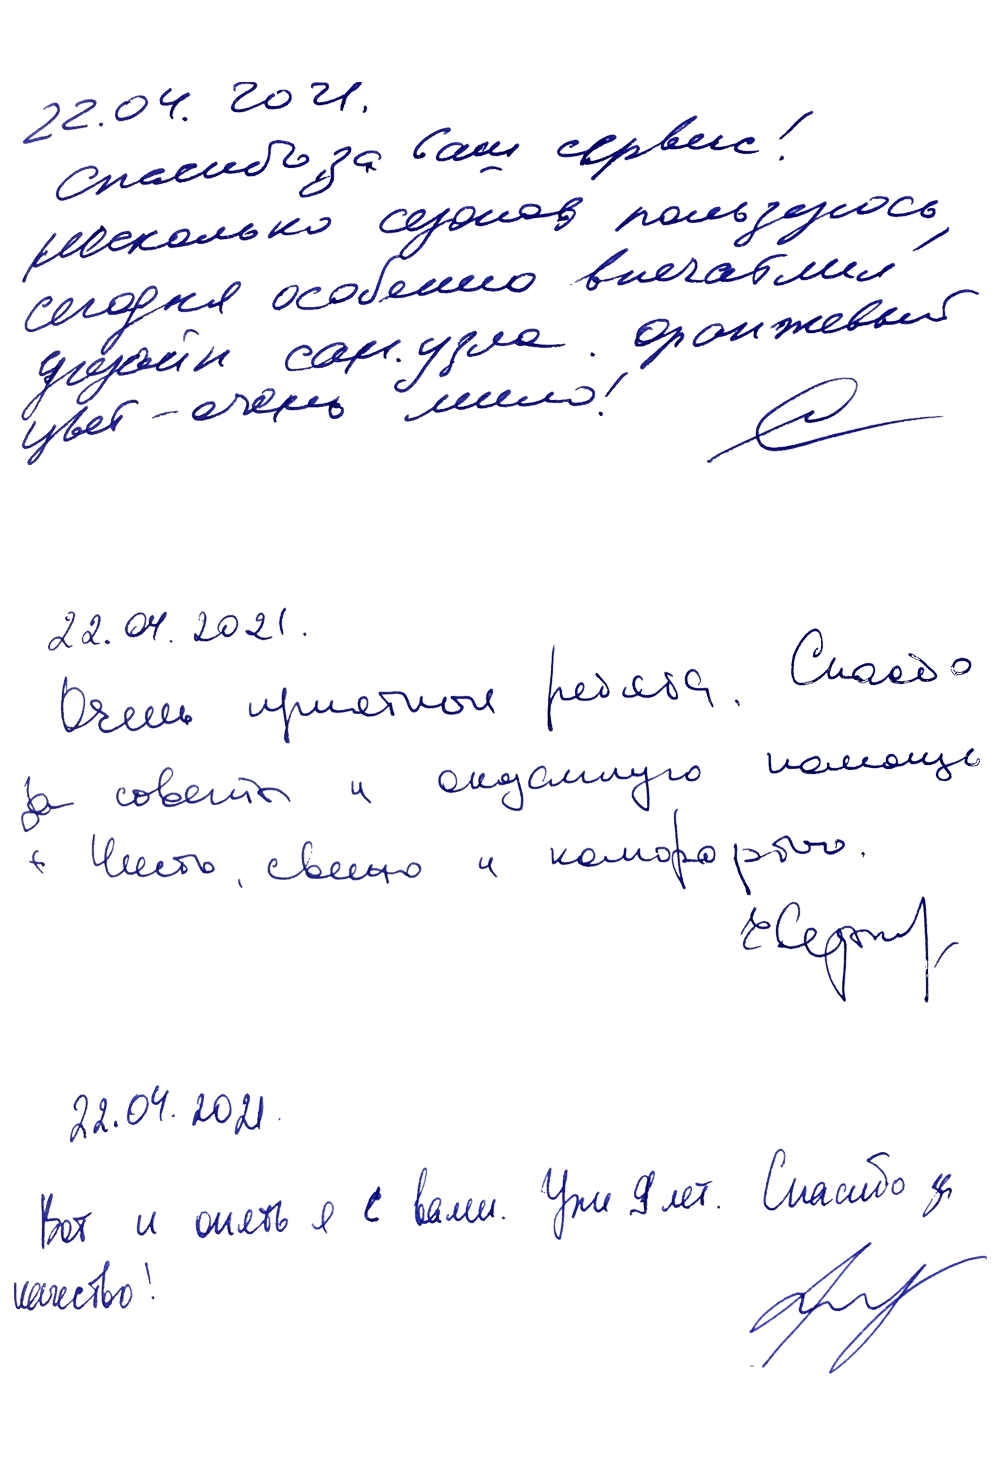 22.04.2021.
Спасибо за Ваш сервис!
несколько сезонов пользуюсь,
сегодня особенно впечатлил
дизайн сан.узла. оранжевый
цвет - очень мило!
22.04.2021.
Очень приятные ребята. Спасибо
За советы и оказанную помощь
+ Чисто, свежо и комфортно.
22.04.2021.
Вот и опять я с вами. Уже 9 лет. Спасибо за
качество!